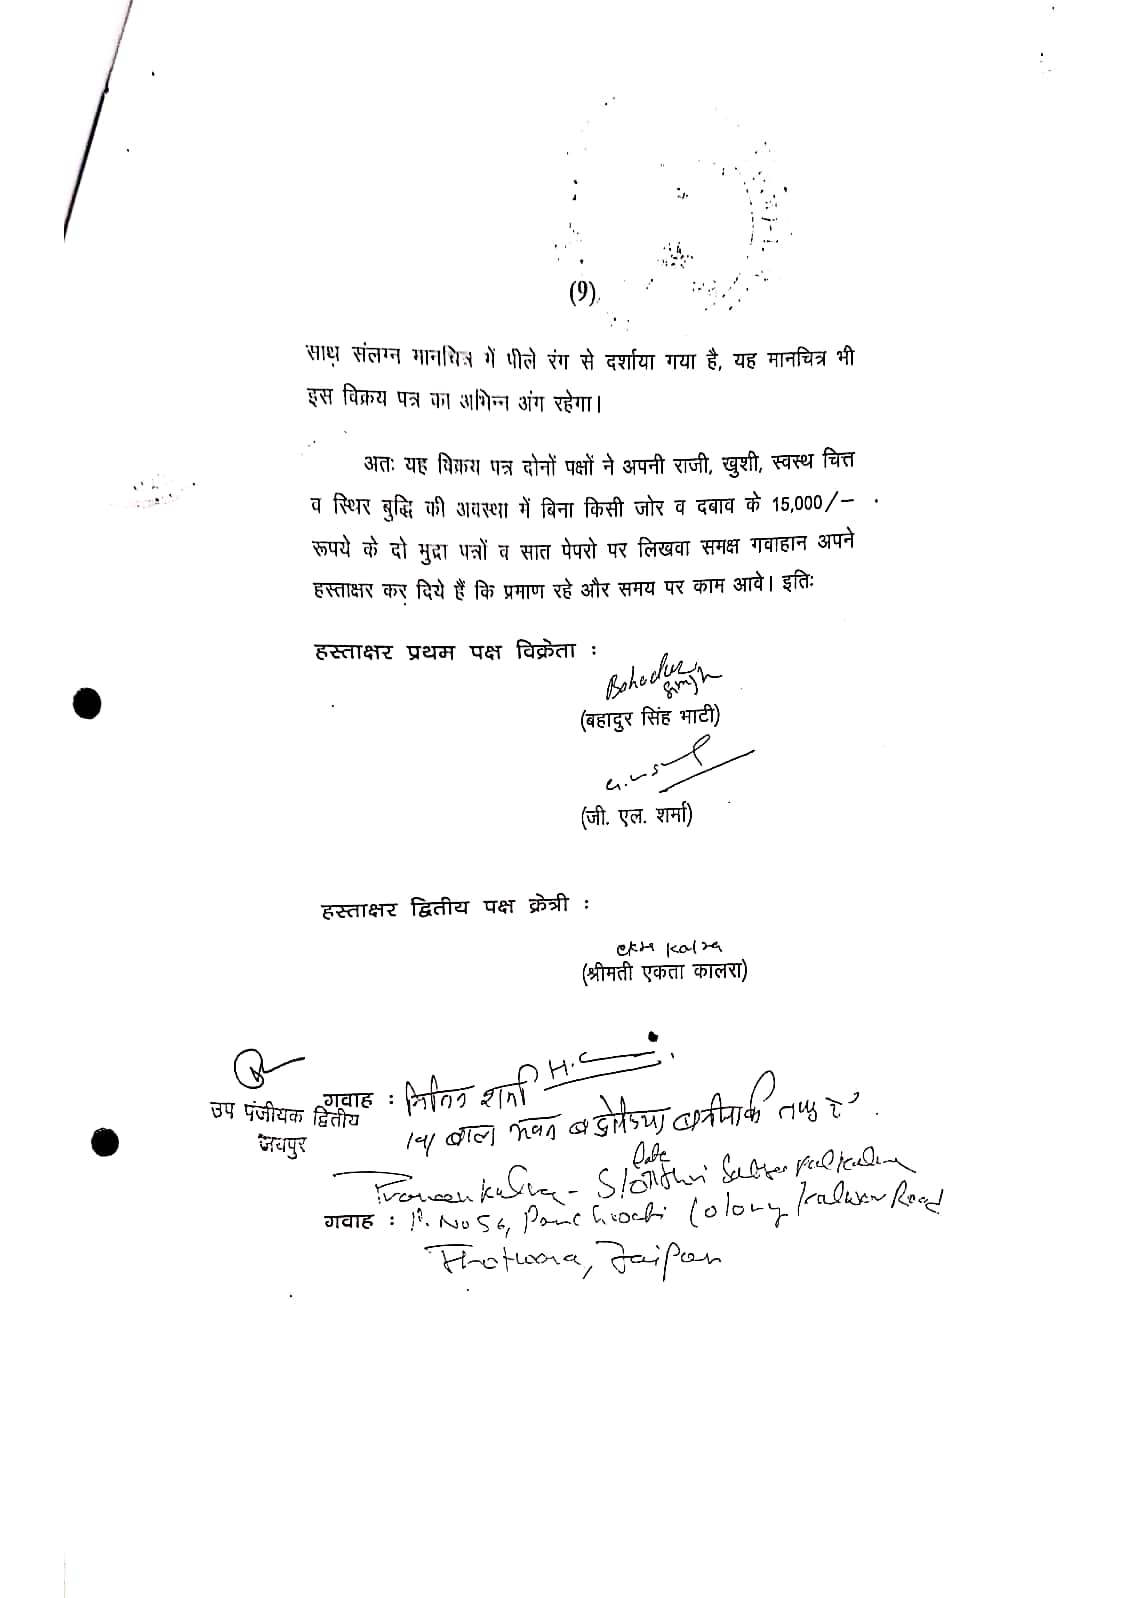 (9)
साथ संलग्न मानचित्र में पीले रंग से दर्शाया गया है, यह मानचित्र भी
इस विक्रय पत्र का अभिन्न अंग रहेगा।
अतः यह विक्रय पत्र दोनों पक्षों ने अपनी राजी, खुशी, स्वस्थ चित्त
व स्थिर बुद्धि की अवस्था में बिना किसी जोर व दबाव के 15,000/-
रूपये के दो मुद्रा पत्रों व सात पेपरो पर लिखवा समक्ष गवाहान अपने
हस्ताक्षर कर दिये हैं कि प्रमाण रहे और समय पर काम आवे। इतिः
हस्ताक्षर प्रथम पक्ष विक्रेता :
Bahadur Singh
(बहादुर सिंह भाटी)
(जी. एल. शर्मा)
हस्ताक्षर द्वितीय पक्ष क्रेत्री :
Kalra
(श्रीमती एकता कालरा)
गवाह : शर्मा
उप पंजीयक द्वितीय
जयपुर
Late
Praveen Kalra - S/o
गवाह : P. No 56, Panchwati Colony Kalwar Road
Jhotwara, Jaipur